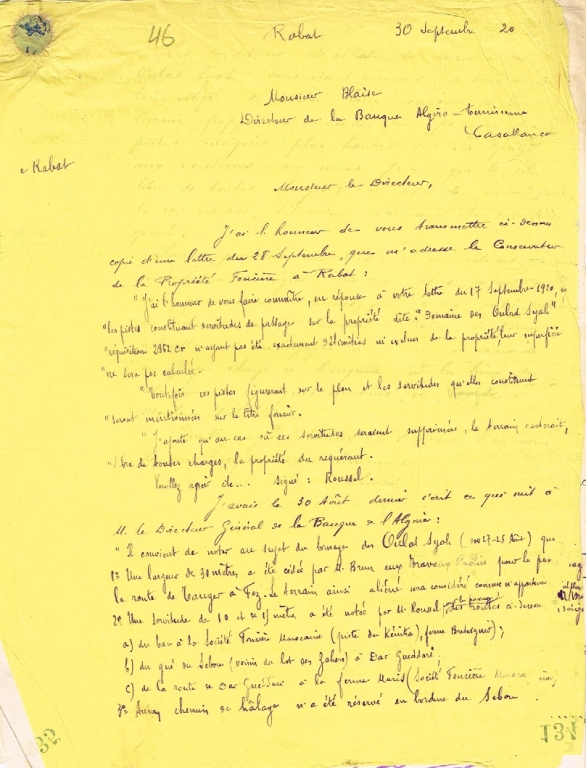 46 Rabat 30 Septembre 20
Monsieur Blaise
Directeur de la Banque Algéro-tunisienne
Casablanca
Rabat
Monsieur le Directeur,
J'ai l'honneur de vous transmettre ci-dessous
copie d'une lettre du 28 Septembre, que m'adresse le Conservateur
de la Propriété Foncière à Rabat :
"J'ai l'honneur de vous faire connaître, en réponse à votre lettre du 17 Septembre 1920,
"les pistes constituant servitudes de passages sur la propriété dite : "Domaine des Oulad Syah"
"réquisition 2962 cr n'ayant pas été exactement délimitées ni exclues de la propriété, leur superficie
"ne sera pas calculée.
"Toutefois ces pistes figureront sur le plan et les servitudes qu'elles constituent
"seront mentionnées sur le titre foncier.
"J'ajoute qu'au cas où ces servitudes seraient supprimées, le terrain resterait,
"libre de toutes charges, la propriété du requérant.
Veuillez agréer etc... signé : Roussel.
J'avais le 30 Août dernier écrit ce qui suit à
M. le Directeur Général de la Banque de l'Algérie :
"Il convient de noter au sujet du bornage des Oulad Syah ( 27-28 Août) que
1° Une largeur de 30 mètres a été cédée par M. Brun aux Travaux Publics pour le
la route de Tanger à Fez. Le terrain ainsi aliéné sera considéré comme n'appartenant
2° Une servitude de 10 et 15 mètres a été notée par M. Roussel, des routes ci-dessous
a) du bac à la Société Foncière Marocaine (piste de Kénitra, ferme );
b) du gué du Sebou (voisin du lot des ) à Dar Gueddari
c) de la route de Dar Gueddari à la ferme Maris (Société Foncière
3° Aucun chemin de halage n'a été réservé en bordure du Sebou.
135 131